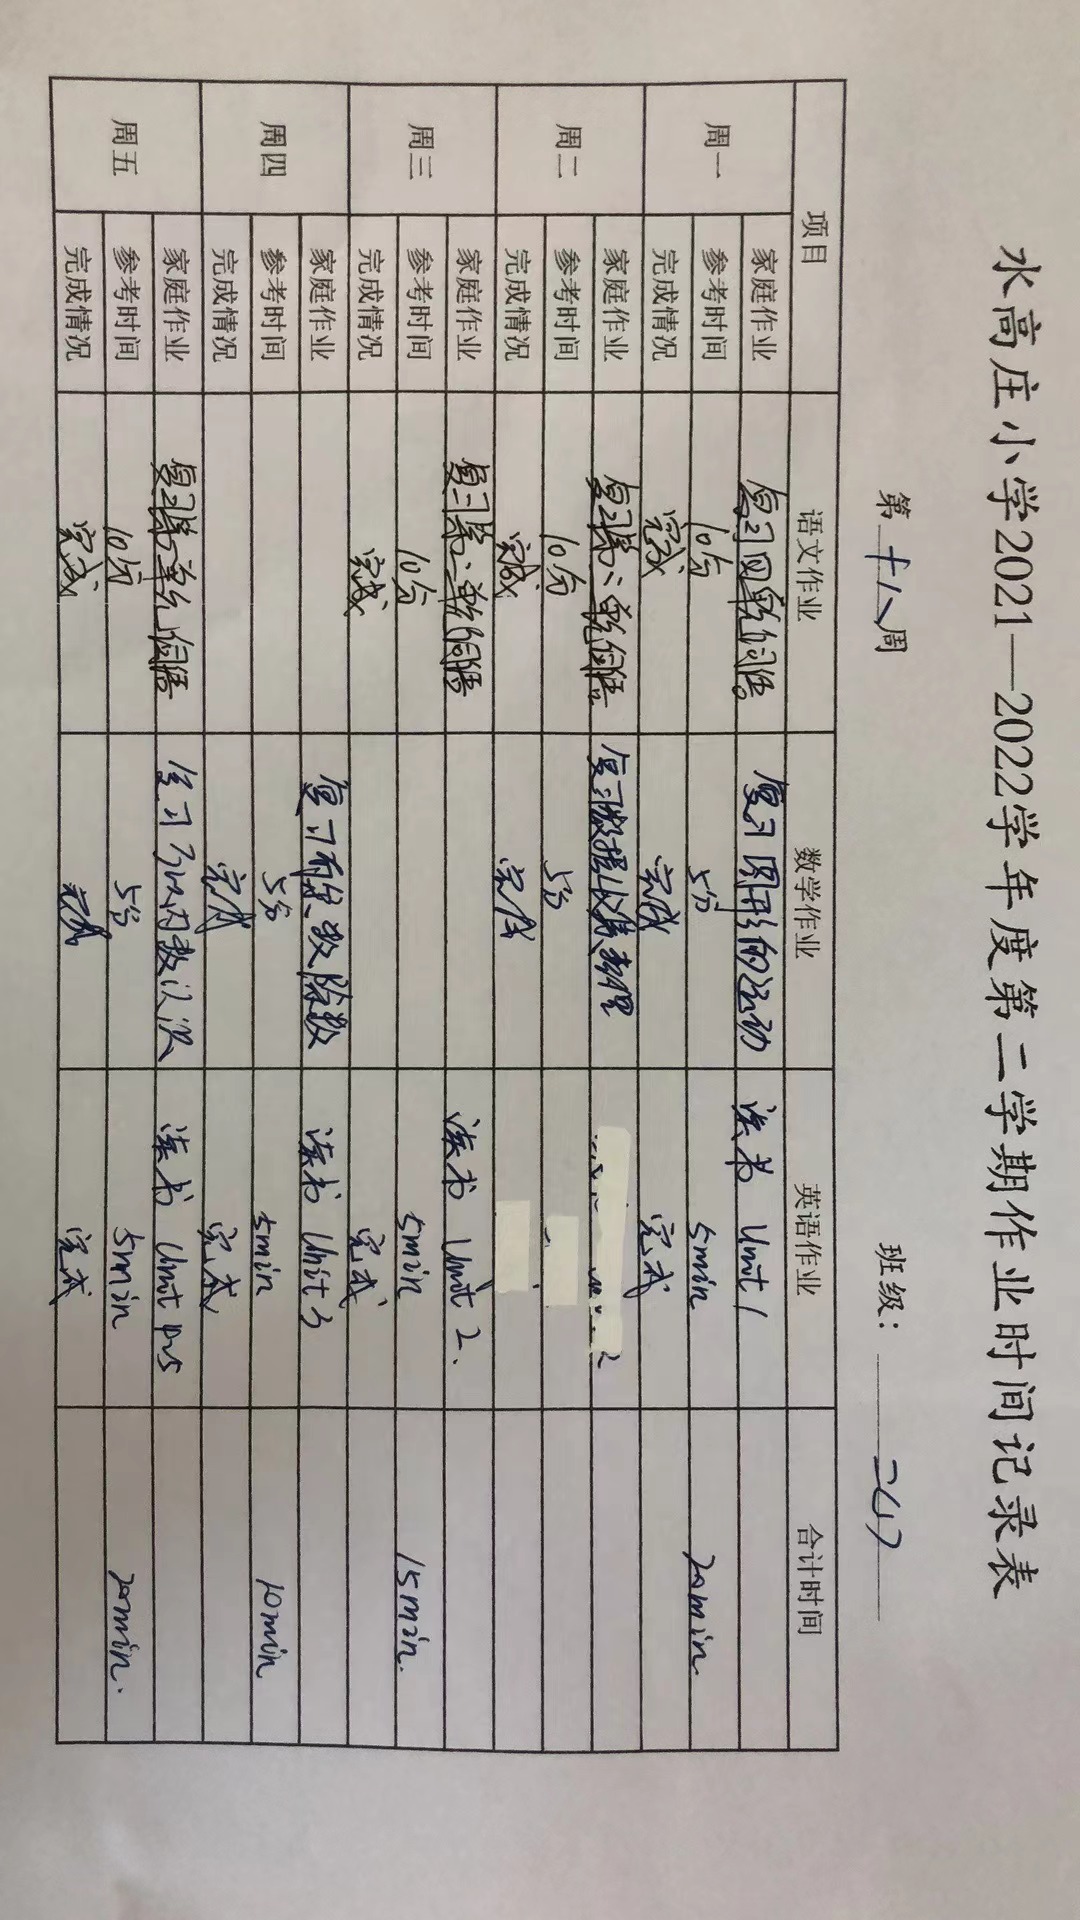 水高庄小学2021—2022学年度第二学期作业时间记录表
第十八周 班级：
项目 语文作业 数学作业 英语作业 合计时间
周一 家庭作业 复习四单元词语。 复习图形的运动 读书 Unit 1
参考时间 10分 5分 5min 20min
完成情况 完成 完成 完成
周二 家庭作业 复习第三单元词语。 复习数据收集整理
参考时间 10分 5分
完成情况 完成 完成
周三 家庭作业 复习第二单元词语 读书 Unit 2.
参考时间 10分 5min 15min.
完成情况 完成 完成
周四 家庭作业 复习有余数除数 读书 Unit 3
参考时间 5分 5min 10min
完成情况 完成 完成
周五 家庭作业 复习第一单元词语 复习万以内数认识 读书 Unit
参考时间 10分 5分 5min 20min.
完成情况 完成 完成 完成